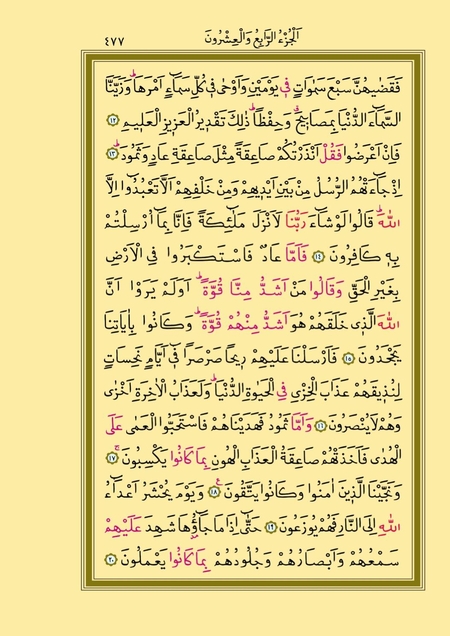 اَلْجُزْءُ الرَّابِعُ وَالْعِشْرُونَ
٤٧٧
فَقَضٰيهُنَّ سَبْعَ سَمٰوَاتٍ فٖي يَوْمَيْنِ وَاَوْحٰى فٖي كُلِّ سَمَٓاءٍ اَمْرَهَاۜ وَزَيَّنَّا
السَّمَٓاءَ الدُّنْيَا بِمَصَابٖيحَۗ وَحِفْظًاۜ ذٰلِكَ تَقْدٖيرُ الْعَزٖيزِ الْعَلٖيمِ ﴿١٢﴾
فَاِنْ اَعْرَضُوا فَقُلْ اَنْذَرْتُكُمْ صَاعِقَةً مِثْلَ صَاعِقَةِ عَادٍ وَثَمُودَۜ ﴿١٣﴾
اِذْ جَٓاءَتْهُمُ الرُّسُلُ مِنْ بَيْنِ اَيْدٖيهِمْ وَمِنْ خَلْفِهِمْ اَلَّا تَعْبُدُٓوا اِلَّا
اللّٰهَۜ قَالُوا لَوْ شَٓاءَ رَبُّنَا لَاَنْزَلَ مَلٰٓئِكَةً فَاِنَّا بِمَٓا اُرْسِلْتُمْ
بِهٖ كَافِرُونَ ﴿١٤﴾ فَاَمَّا عَادٌ فَاسْتَكْبَرُوا فِي الْاَرْضِ
بِغَيْرِ الْحَقِّ وَقَالُوا مَنْ اَشَدُّ مِنَّا قُوَّةًۜ اَوَلَمْ يَرَوْا اَنَّ
اللّٰهَ الَّذٖي خَلَقَهُمْ هُوَ اَشَدُّ مِنْهُمْ قُوَّةًۜ وَكَانُوا بِاٰيَاتِنَا
يَجْحَدُونَ ﴿١٥﴾ فَاَرْسَلْنَا عَلَيْهِمْ رٖيحًا صَرْصَرًا فٖٓي اَيَّامٍ نَحِسَاتٍ
لِنُذٖيقَهُمْ عَذَابَ الْخِزْيِ فِي الْحَيٰوةِ الدُّنْيَاۜ وَلَعَذَابُ الْاٰخِرَةِ اَخْزٰى
وَهُمْ لَا يُنْصَرُونَ ﴿١٦﴾ وَاَمَّا ثَمُودُ فَهَدَيْنَاهُمْ فَاسْتَحَبُّوا الْعَمٰى عَلَى
الْهُدٰى فَاَخَذَتْهُمْ صَاعِقَةُ الْعَذَابِ الْهُونِ بِمَا كَانُوا يَكْسِبُونَۚ ﴿١٧﴾
وَنَجَّيْنَا الَّذٖينَ اٰمَنُوا وَكَانُوا يَتَّقُونَ۟ ﴿١٨﴾ وَيَوْمَ يُحْشَرُ اَعْدَٓاءُ
اللّٰهِ اِلَى النَّارِ فَهُمْ يُوزَعُونَ ﴿١٩﴾ حَتّٰٓى اِذَا مَا جَٓاؤُ۫هَا شَهِدَ عَلَيْهِمْ
سَمْعُهُمْ وَاَبْصَارُهُمْ وَجُلُودُهُمْ بِمَا كَانُوا يَعْمَلُونَ ﴿٢٠﴾